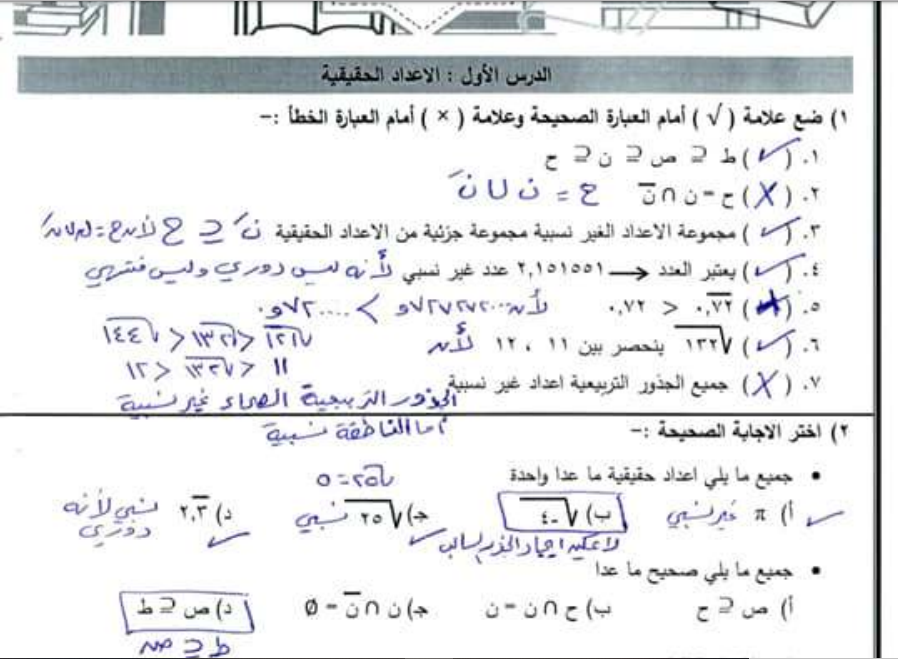 الدرس الأول : الاعداد الحقيقية
١) ضع علامة ( √ ) أمام العبارة الصحيحة وعلامة ( × ) أمام العبارة الخطأ :-
١. ( ✓ ) ط ⊆ ص ⊆ ن ⊆ ح
٢. ( X ) ح = ن ∩ ن̅ ح = ن U نَ
٣. ( ✓ ) مجموعة الاعداد الغير نسبية مجموعة جزئية من الاعداد الحقيقية نَ ⊆ ح لأن ح = ن U نَ
٤. ( ✓ ) يعتبر العدد ٢,١٥١٥٥١ ⟶ عدد غير نسبي لأنه ليس دوري وليس منتهي
٥. ( X ) ٠,٧٢ > ٠,٧٢ لأن
٦. ( ✓ ) √١٣٢ ينحصر بين ١١ ، ١٢ لأن √١٢١ < √١٣٢ < √١٤٤
١١ < √١٣٢ < ١٢
٧. ( X ) جميع الجذور التربيعية اعداد غير نسبية الجذور التربيعية الصماء غير نسبية
أما الناطقة نسبية
٢) اختر الاجابة الصحيحة :-
• جميع ما يلي اعداد حقيقية ما عدا واحدة √٢٥ = ٥
✓ أ) π غير نسبي ب) √-٤ ج) √٢٥ نسبي د) ٢,٣̅ نسبي لأنه دوري ✓
لا يمكن ايجاد الجذر لسالب ✓
• جميع ما يلي صحيح ما عدا
أ) ص ⊆ ح ب) ح ∩ ن = ن ج) ن ∩ ن̅ = Ø د) ص ⊆ ط
ط ⊆ ص